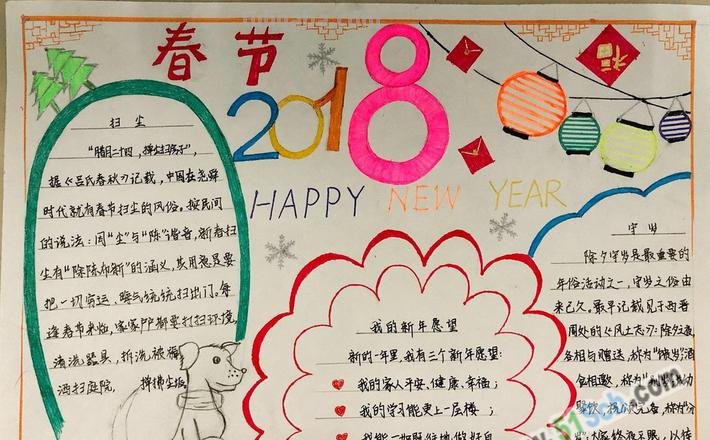 春节
2018
福
HAPPY NEW YEAR
扫尘
"腊月二十四，掸尘扫房子"，
据《吕氏春秋》记载，中国在尧舜
时代就有春节扫尘的风俗。按民间
的说法：因"尘"与"陈"谐音，新春扫
尘有"除陈布新"的涵义，其用意是要
把一切穷运、晦气统统扫出门。每
逢春节来临，家家户户都要打扫环境，
清洗器具，拆洗被褥
洒扫庭院，掸拂尘垢
我的新年愿望
新的一年里，我有三个新年愿望：
我的家人平安、健康、幸福；
我的学习能更上一层楼；
我能一如既往地做好自
守岁
除夕守岁是最重要的
年俗活动之一，守岁之俗由
来已久。最早记载见于西晋
周处的《风土志》：除夕之
各相与赠送，称为"馈岁"酒
食相邀，称为
聚饮，祝
终夜不眠，以待